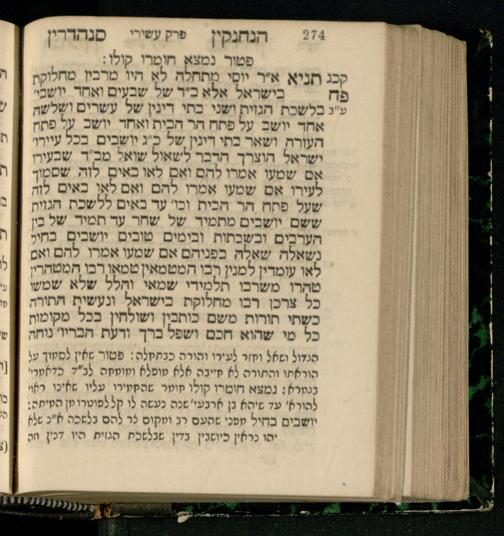 הנחנקין פרק עשירי סנהדרין 274
פטור נמצא חומרו קולו:
קכג תניא א״ר יוסי מתחלה לא היו מרבין מחלוקת
פח בישראל אלא ב״ד של שבעים ואחד יושבי׳
ע״ב בלשכת הגזית ושני בתי דינין של עשרים ושלשה
אחד יושב על פתח הר הבית ואחד יושב על פתח
העזרה ושאר בתי דינין של כ״ג יושבים בכל עיירי׳
ישראל הוצרך הדבר לשאול שואל מב״ד שבעירו
אם שמעו אמרו להם ואם לאו באים לזה שסמוך
לעירו אם שמעו אמרו להם ואם לאו באים לזה
שעל פתח הר הבית וכו׳ עד באים ללשכת הגזית
ששם יושבים מתמיד של שחר עד תמיד של בין
הערבים ובשבתות ובימים טובים יושבים בחיל
נשאלה שאלה בפניהם אם שמעו אמרו להם ואם
לאו עומדין למנין רבו המטמאין טמאו רבו המטהרין
טהרו משרבו תלמידי שמאי והלל שלא שמשו
כל צרכן רבו מחלוקת בישראל ונעשית התורה
כשתי תורות משם כותבין ושולחין בכל מקומות
כל מי שהוא חכם ושפל ברך ודעת הבריו׳ נוחה
הגדול ושאל וחזר לעירו והורה כבתחלה: פטור שאין לסמוך על
הוראתו והתורה לא חייבה אלא מופלא ומומחה לב״ד כדאמרי׳
בגמרא: נמצא חומרו קולו חומר שהחמירו עליו שאינו ראוי
להורא׳ עד שיהא בן ארבעי׳ שנה נעשה לו קל לפוטרו מן המיתה:
יושבים בחיל מפני שהעם רב ומקום צר להם בלשכה א״כ שלא
יהו נראין כיושבין בדין שבלשכת הגזית היו דנין וזה